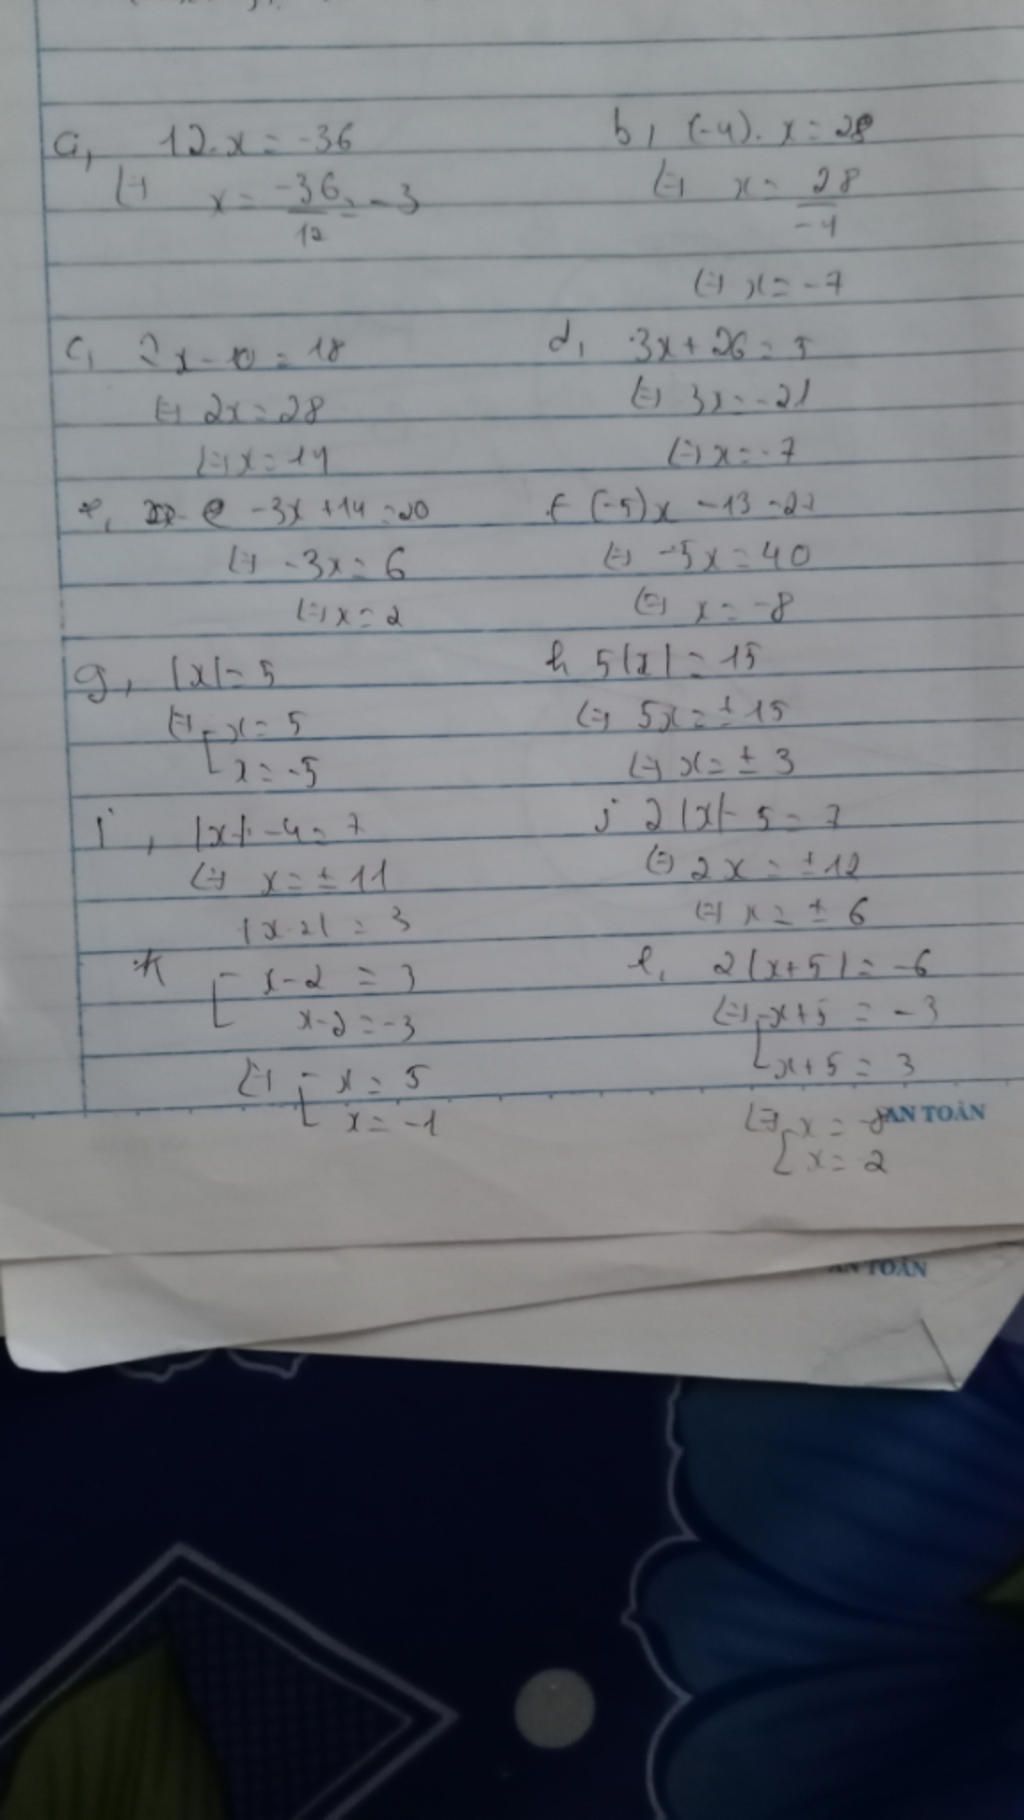 a, 12.x = -36
(=) x = -36/12 = -3
b, (-4). x = 28
(=) x = 28/-4
(=) x = -7
c, 2x - 10 = 18
(=) 2x = 28
(=) x = 14
d, 3x + 26 = 5
(=) 3x = -21
(=) x = -7
e, -3x + 14 = 20
(=) -3x = 6
(=) x = 2
f (-5)x - 13 = 27
(=) -5x = 40
(=) x = -8
g, |x| = 5
(=) [ x = 5
x = -5
h 5|x| = 15
(=) 5x = ± 15
(=) x = ± 3
i, |x| - 4 = 7
(=) x = ± 11
j 2|x| - 5 = 7
(=) 2x = ± 12
(=) x = ± 6
|x-2| = 3
k [ x-2 = 3
x-2 = -3
(=) [ x = 5
x = -1
l, 2|x+5| = -6
(=) [ x+5 = -3
x+5 = 3
(=) [ x = -8
x = 2
AN TOÀN
AN TOÀN